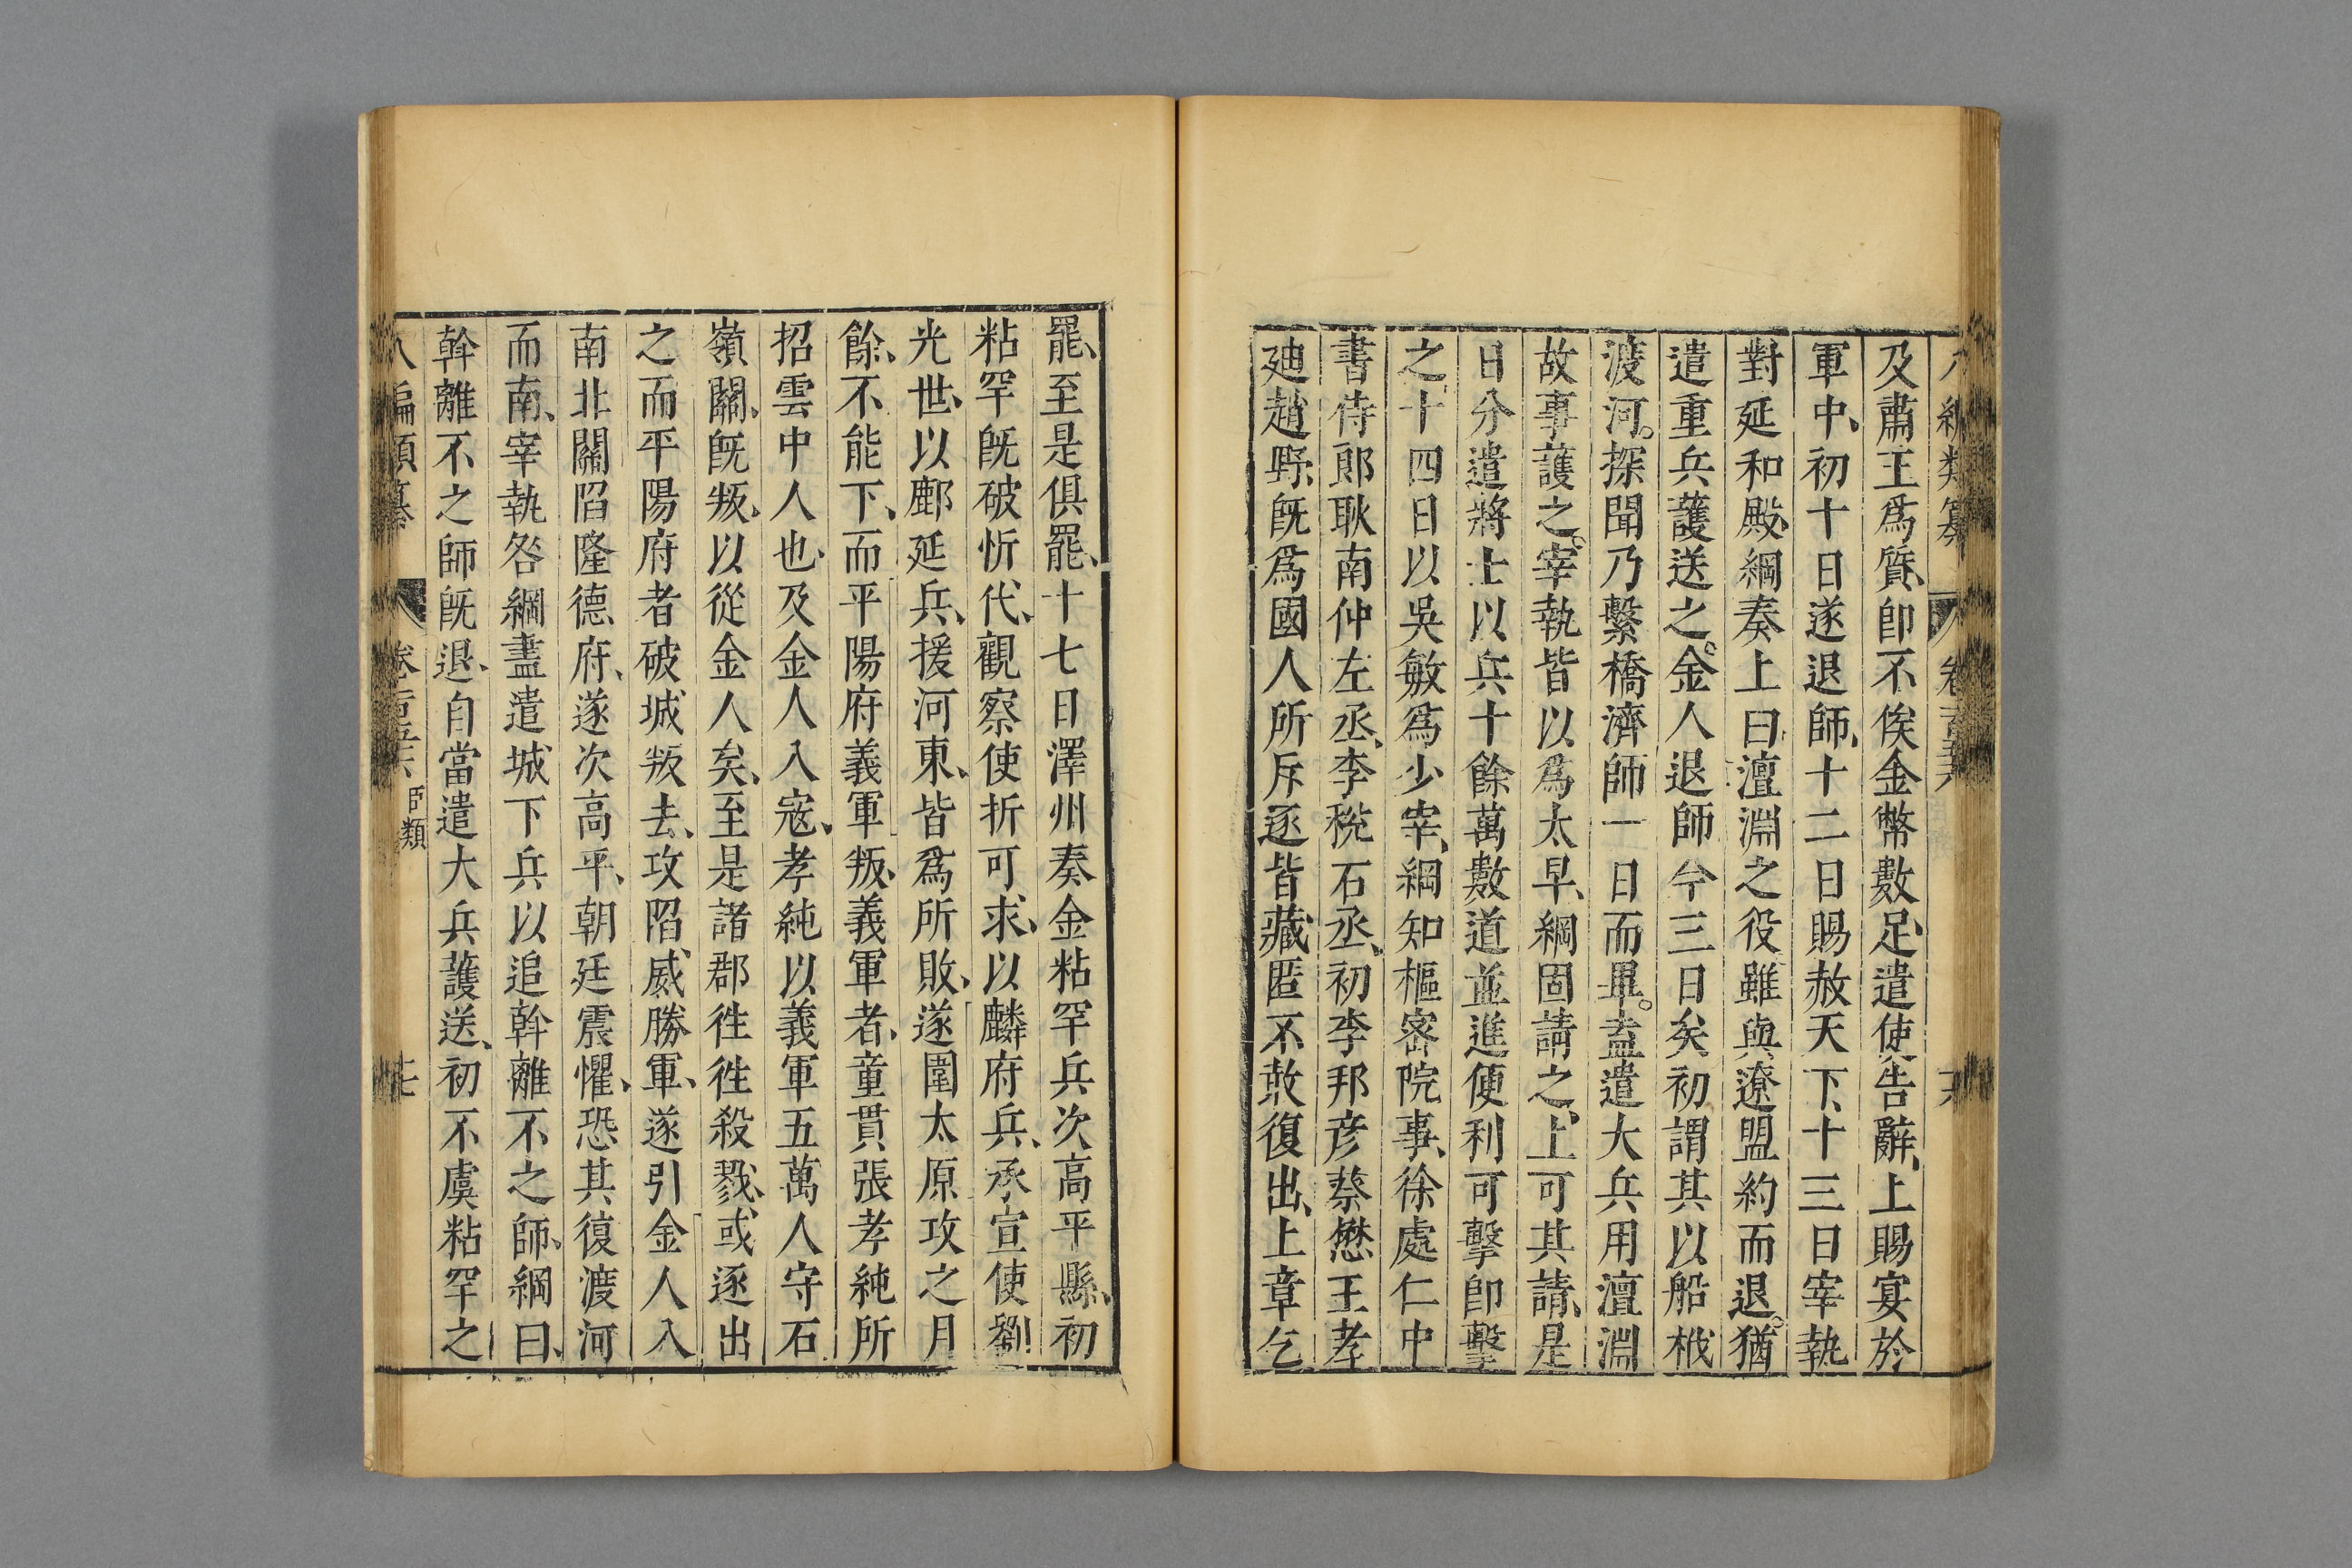 及肅王爲質、卽不俟金幣數足、遣使告辭、上賜宴於
軍中、初十日遂退師、十二日賜赦天下、十三日宰執
對延和殿、綱奏上曰、澶淵之役雖與遼盟約而退。猶
遣重兵護送之。金人退師今三日矣初謂其以船栰
渡河。探聞乃繫橋濟師一日而畢。盍遣大兵用澶淵
故事護之。宰執皆以爲太早、綱固請之、上可其請、是
日分遣將士以兵十餘萬數道並進便利可擊卽擊
之十四日以吳敏爲少宰、綱知樞密院事、徐處仁中
書侍郎耿南仲左丞、李梲右丞、初李邦彦蔡懋王孝
廸趙野、旣爲國人所斥逐皆藏匿不敢復出、上章乞
罷、至是俱罷、十七日澤州奏金粘罕兵次高平縣、初
粘罕旣破忻代、觀察使折可求、以麟府兵、承宣使劉
光世、以鄜延兵、援河東、皆爲所敗、遂圍太原攻之月
餘、不能下、而平陽府義軍叛、義軍者、童貫張孝純所
招雲中人也、及金人入寇、孝純以義軍五萬人守石
嶺關、旣叛、以從金人矣、至是諸郡徃徃殺戮、或逐出
之而平陽府者破城叛去、攻陷威勝軍、遂引金人入
南北關陷隆德府、遂次高平、朝廷震懼、恐其復渡河
而南、宰執咎綱盡遣城下兵以追斡離不之師、綱曰、
斡離不之師旣退、自當遣大兵護送、初不虞粘罕之
臣類